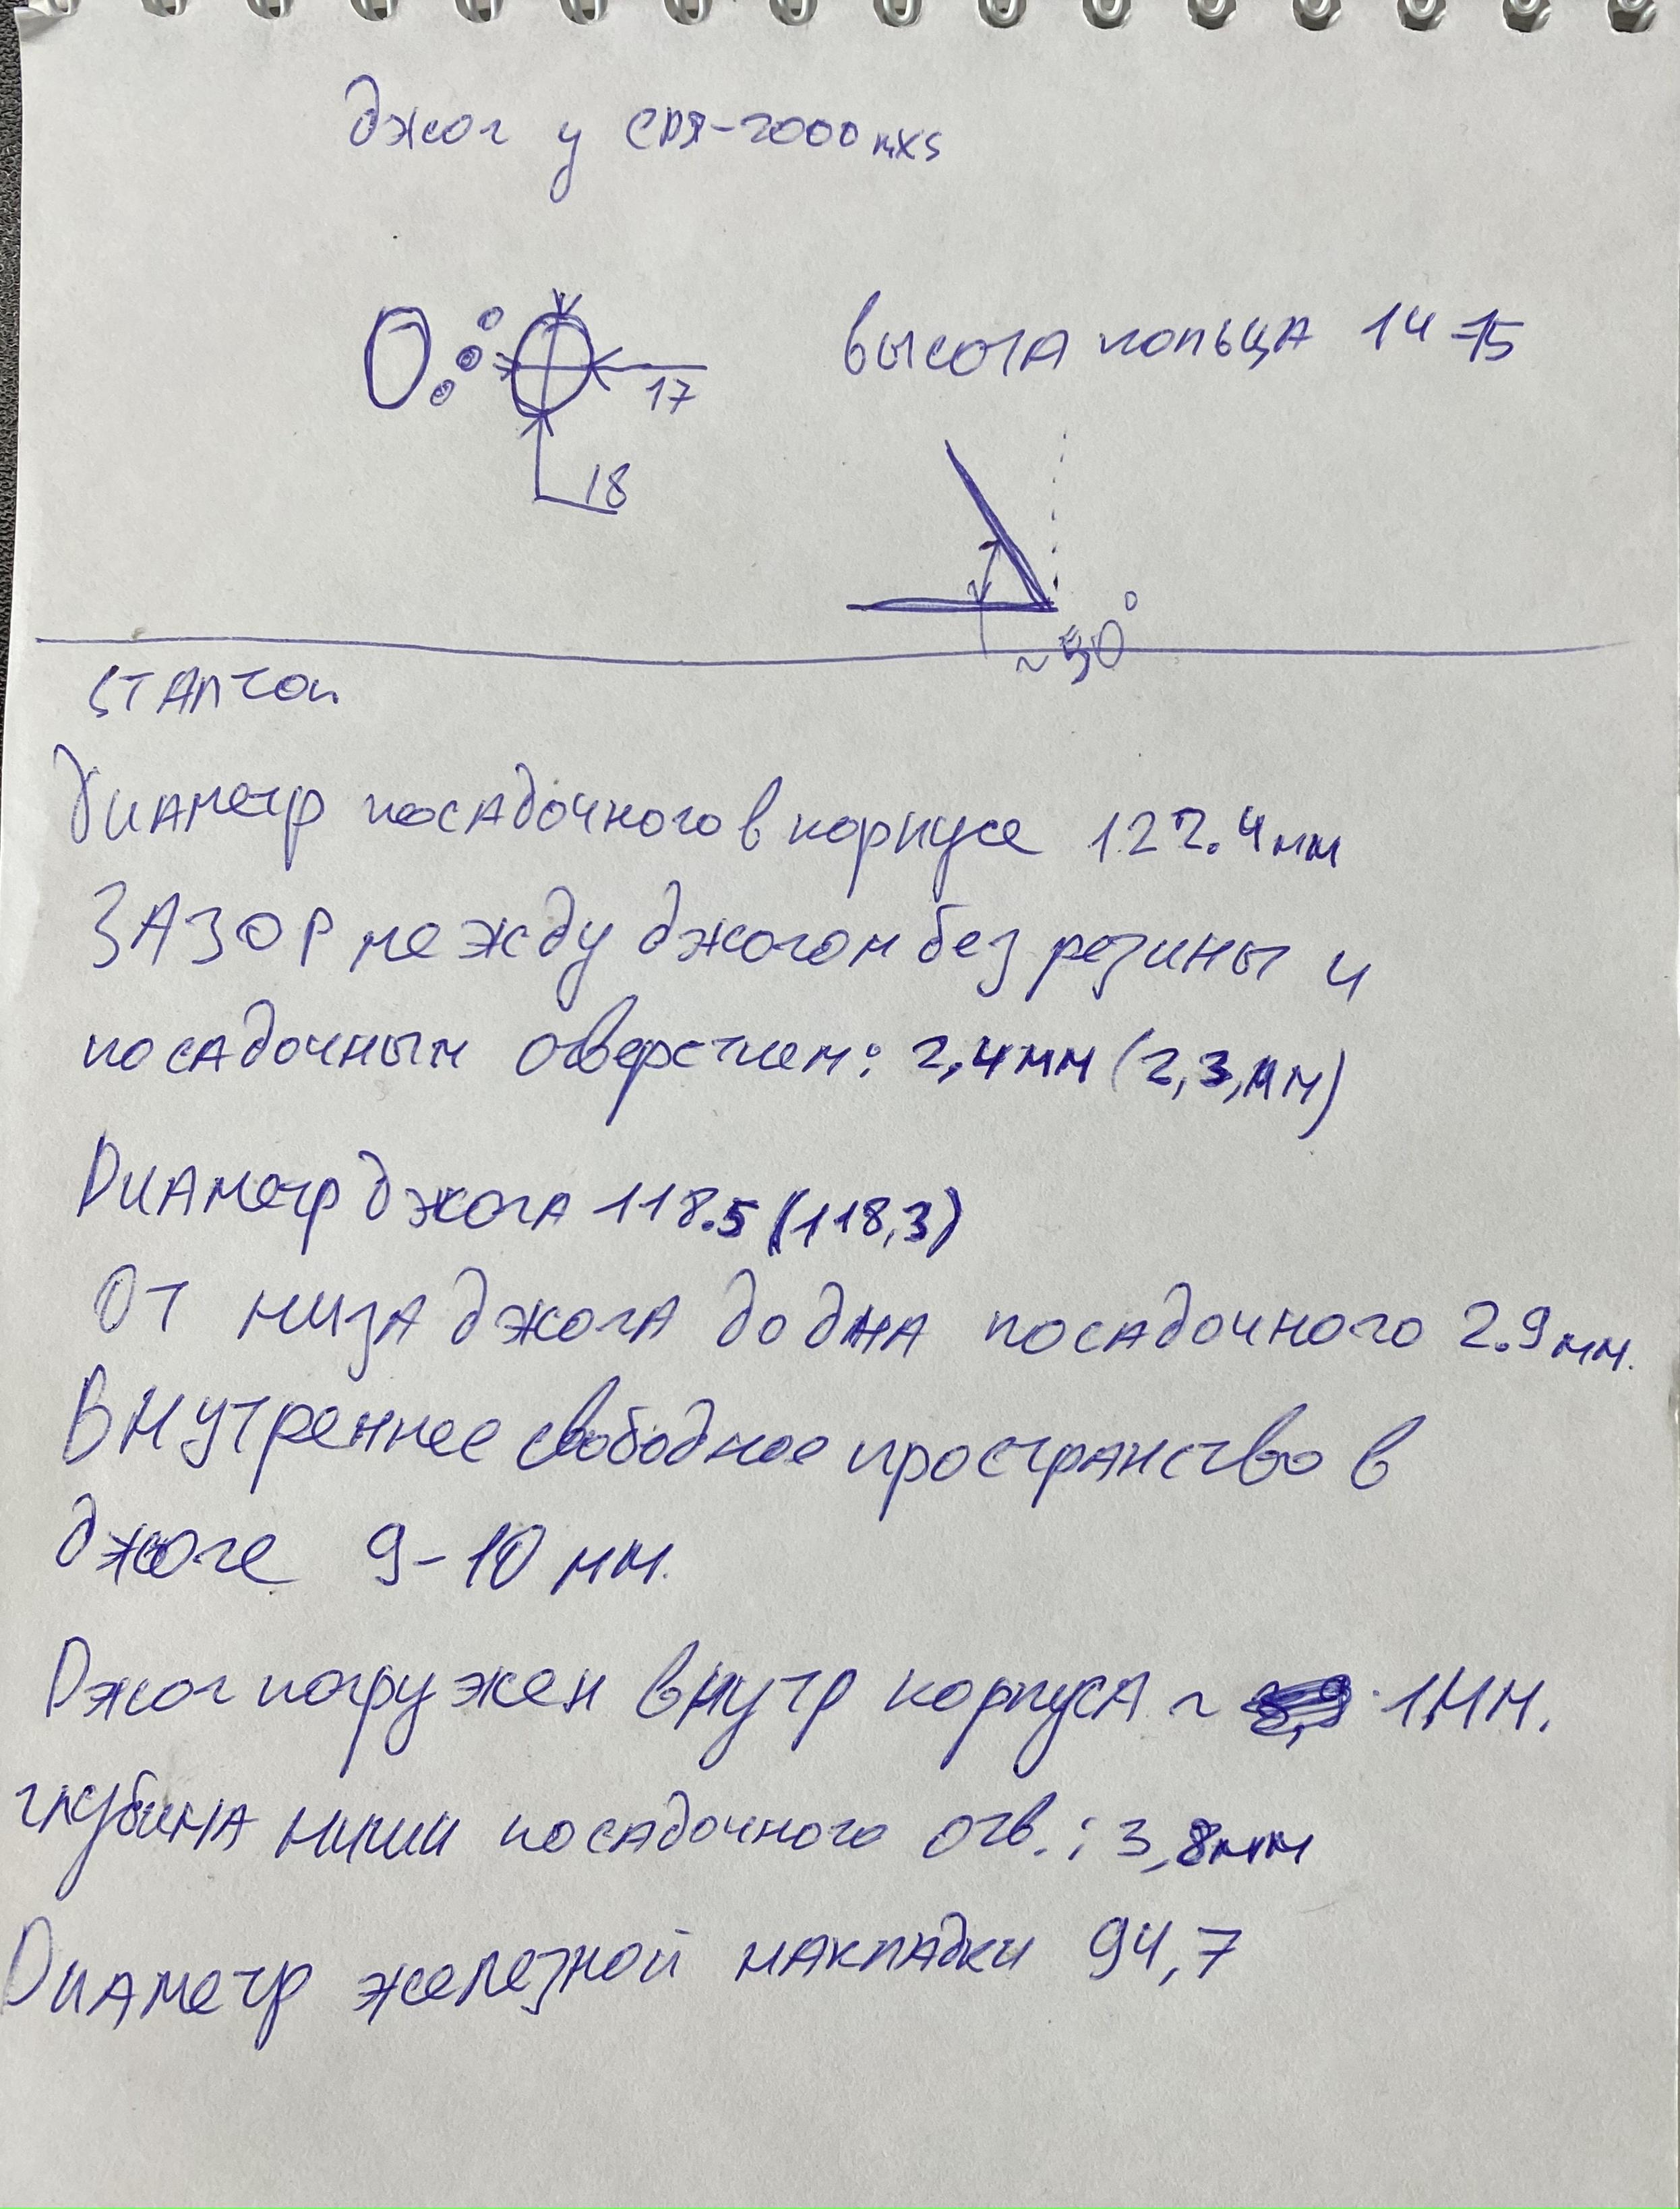 джог у CDJ-2000nxs
высота кольца 14-15
17
18
~50°
Диаметр посадочного в корпусе 122.4мм
ЗАЗОР между джогом без резины и
посадочным отверстием: 2,4мм (2,3,мм)
Диаметр джога 118.5 (118,3)
От низа джога до дна посадочного 2.9мм.
Внутреннее свободное пространство в
джоге 9-10 мм.
Джог погружен внутр корпуса ~ 1мм.
глубина ниши посадочного отв.: 3,8мм
Диаметр железной накладки 94,7